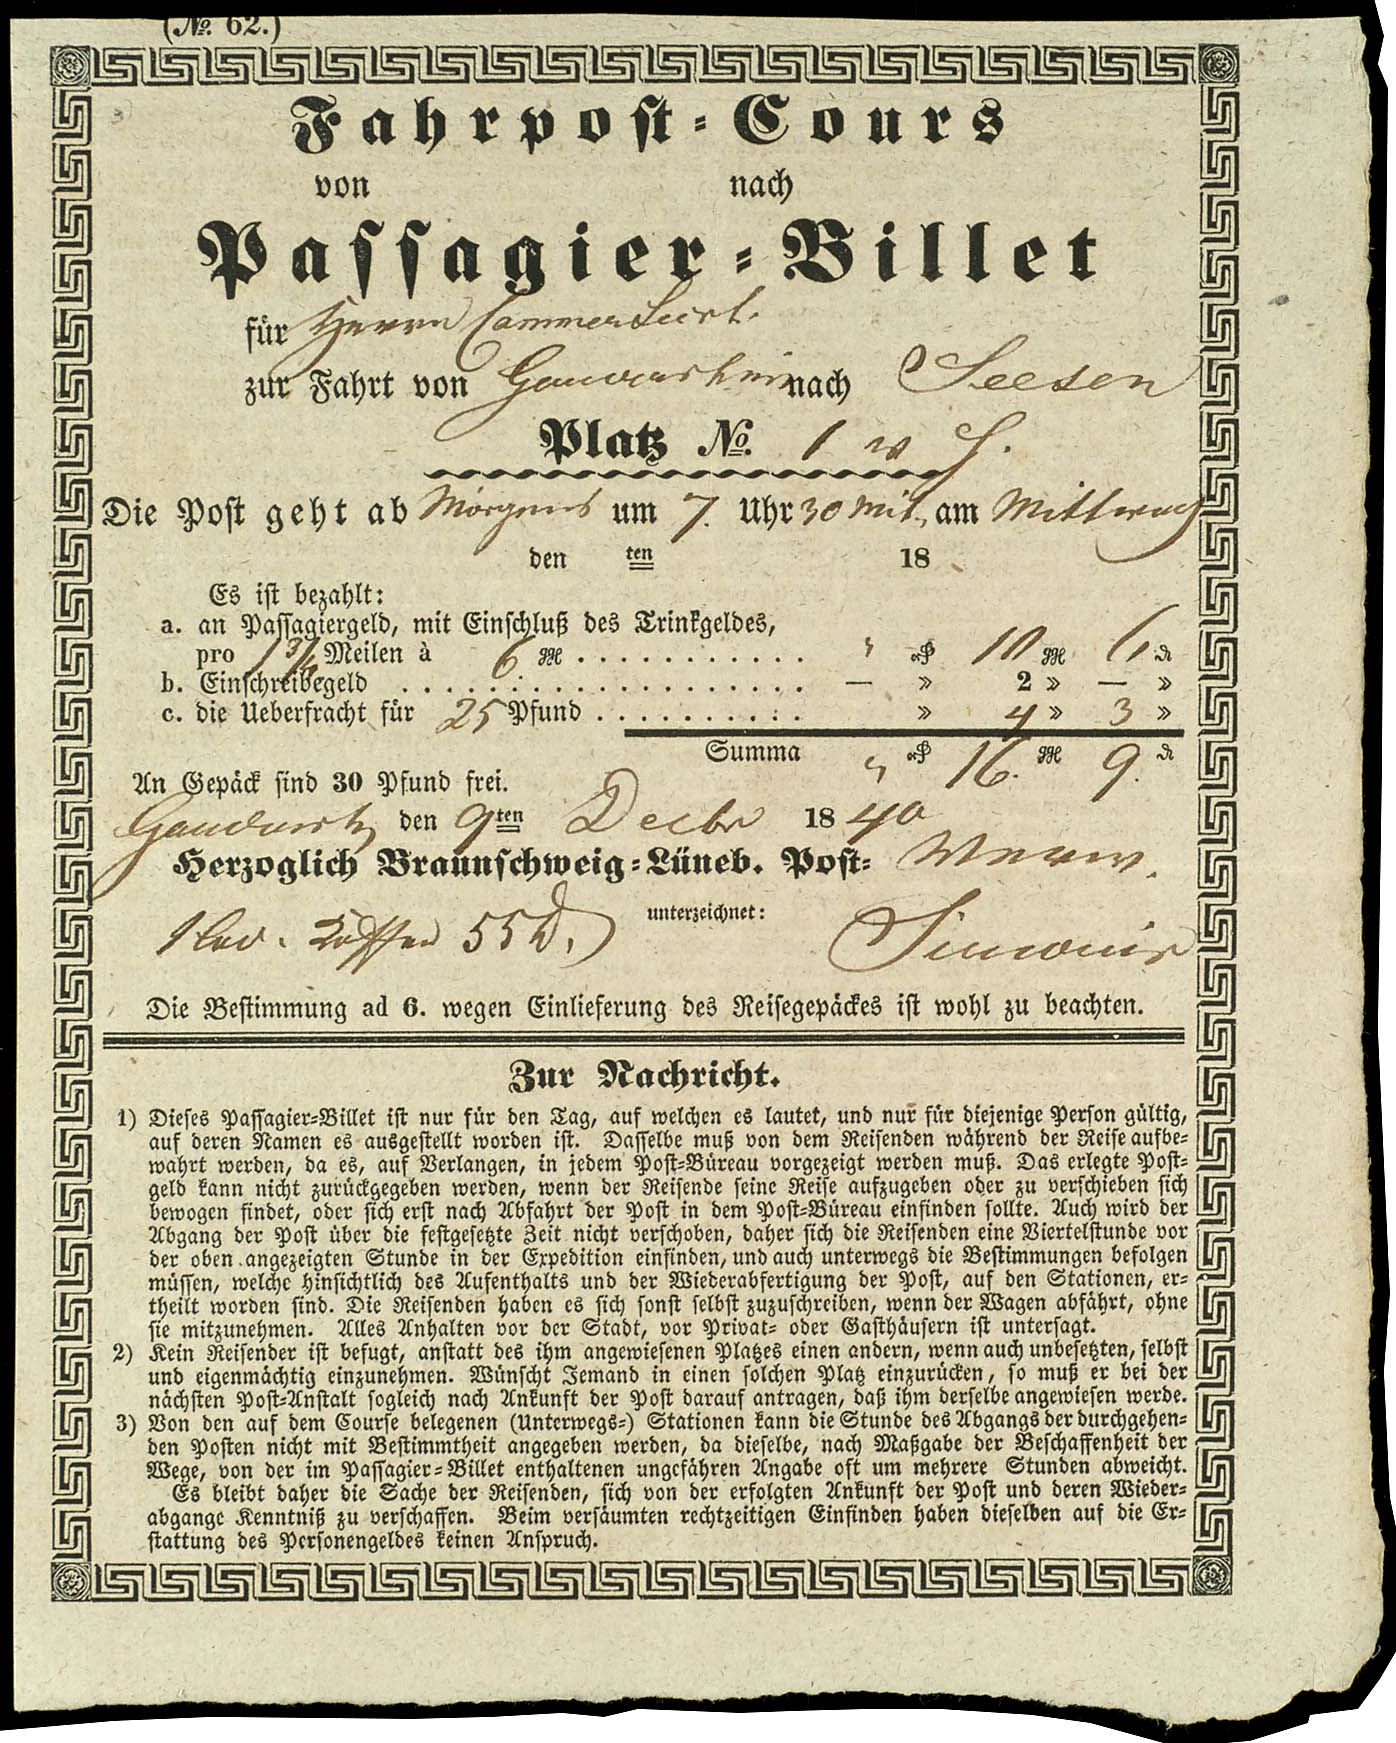 (No. 62.)
Fahrpost-Cours
von nach
Passagier-Billet
für Herrn
zur Fahrt von nach Seesen
Platz No. 1
Die Post geht ab Morgens um 7. Uhr 30 am Mittwoch
den ten 18
Es ist bezahlt:
a. an Passagiergeld, mit Einschluß des Trinkgeldes,
pro Meilen à 6
b. Einschreibegeld — » 2 » — »
c. die Ueberfracht für 25 Pfund » 4 » 3 »
Summa 16. 9.
An Gepäck sind 30 Pfund frei.
den 9ten Decbr 1840
Herzoglich Braunschweig-Lüneb. Post-
unterzeichnet:
Die Bestimmung ad 6. wegen Einlieferung des Reisegepäckes ist wohl zu beachten.
Zur Nachricht.
1) Dieses Passagier-Billet ist nur für den Tag, auf welchen es lautet, und nur für diejenige Person gültig,
auf deren Namen es ausgestellt worden ist. Dasselbe muß von dem Reisenden während der Reise aufbe-
wahrt werden, da es, auf Verlangen, in jedem Post-Büreau vorgezeigt werden muß. Das erlegte Post-
geld kann nicht zurückgegeben werden, wenn der Reisende seine Reise aufzugeben oder zu verschieben sich
bewogen findet, oder sich erst nach Abfahrt der Post in dem Post-Büreau einfinden sollte. Auch wird der
Abgang der Post über die festgesetzte Zeit nicht verschoben, daher sich die Reisenden eine Viertelstunde vor
der oben angezeigten Stunde in der Expedition einfinden, und auch unterwegs die Bestimmungen befolgen
müssen, welche hinsichtlich des Aufenthalts und der Wiederabfertigung der Post, auf den Stationen, er-
theilt worden sind. Die Reisenden haben es sich sonst selbst zuzuschreiben, wenn der Wagen abfährt, ohne
sie mitzunehmen. Alles Anhalten vor der Stadt, vor Privat- oder Gasthäusern ist untersagt.
2) Kein Reisender ist befugt, anstatt des ihm angewiesenen Platzes einen andern, wenn auch unbesetzten, selbst
und eigenmächtig einzunehmen. Wünscht Jemand in einen solchen Platz einzurücken, so muß er bei der
nächsten Post-Anstalt sogleich nach Ankunft der Post darauf antragen, daß ihm derselbe angewiesen werde.
3) Von den auf dem Course belegenen (Unterwegs-) Stationen kann die Stunde des Abgangs der durchgehen-
den Posten nicht mit Bestimmtheit angegeben werden, da dieselbe, nach Maßgabe der Beschaffenheit der
Wege, von der im Passagier-Billet enthaltenen ungefähren Angabe oft um mehrere Stunden abweicht.
Es bleibt daher die Sache der Reisenden, sich von der erfolgten Ankunft der Post und deren Wieder-
abgange Kenntniß zu verschaffen. Beim versäumten rechtzeitigen Einfinden haben dieselben auf die Er-
stattung des Personengeldes keinen Anspruch.